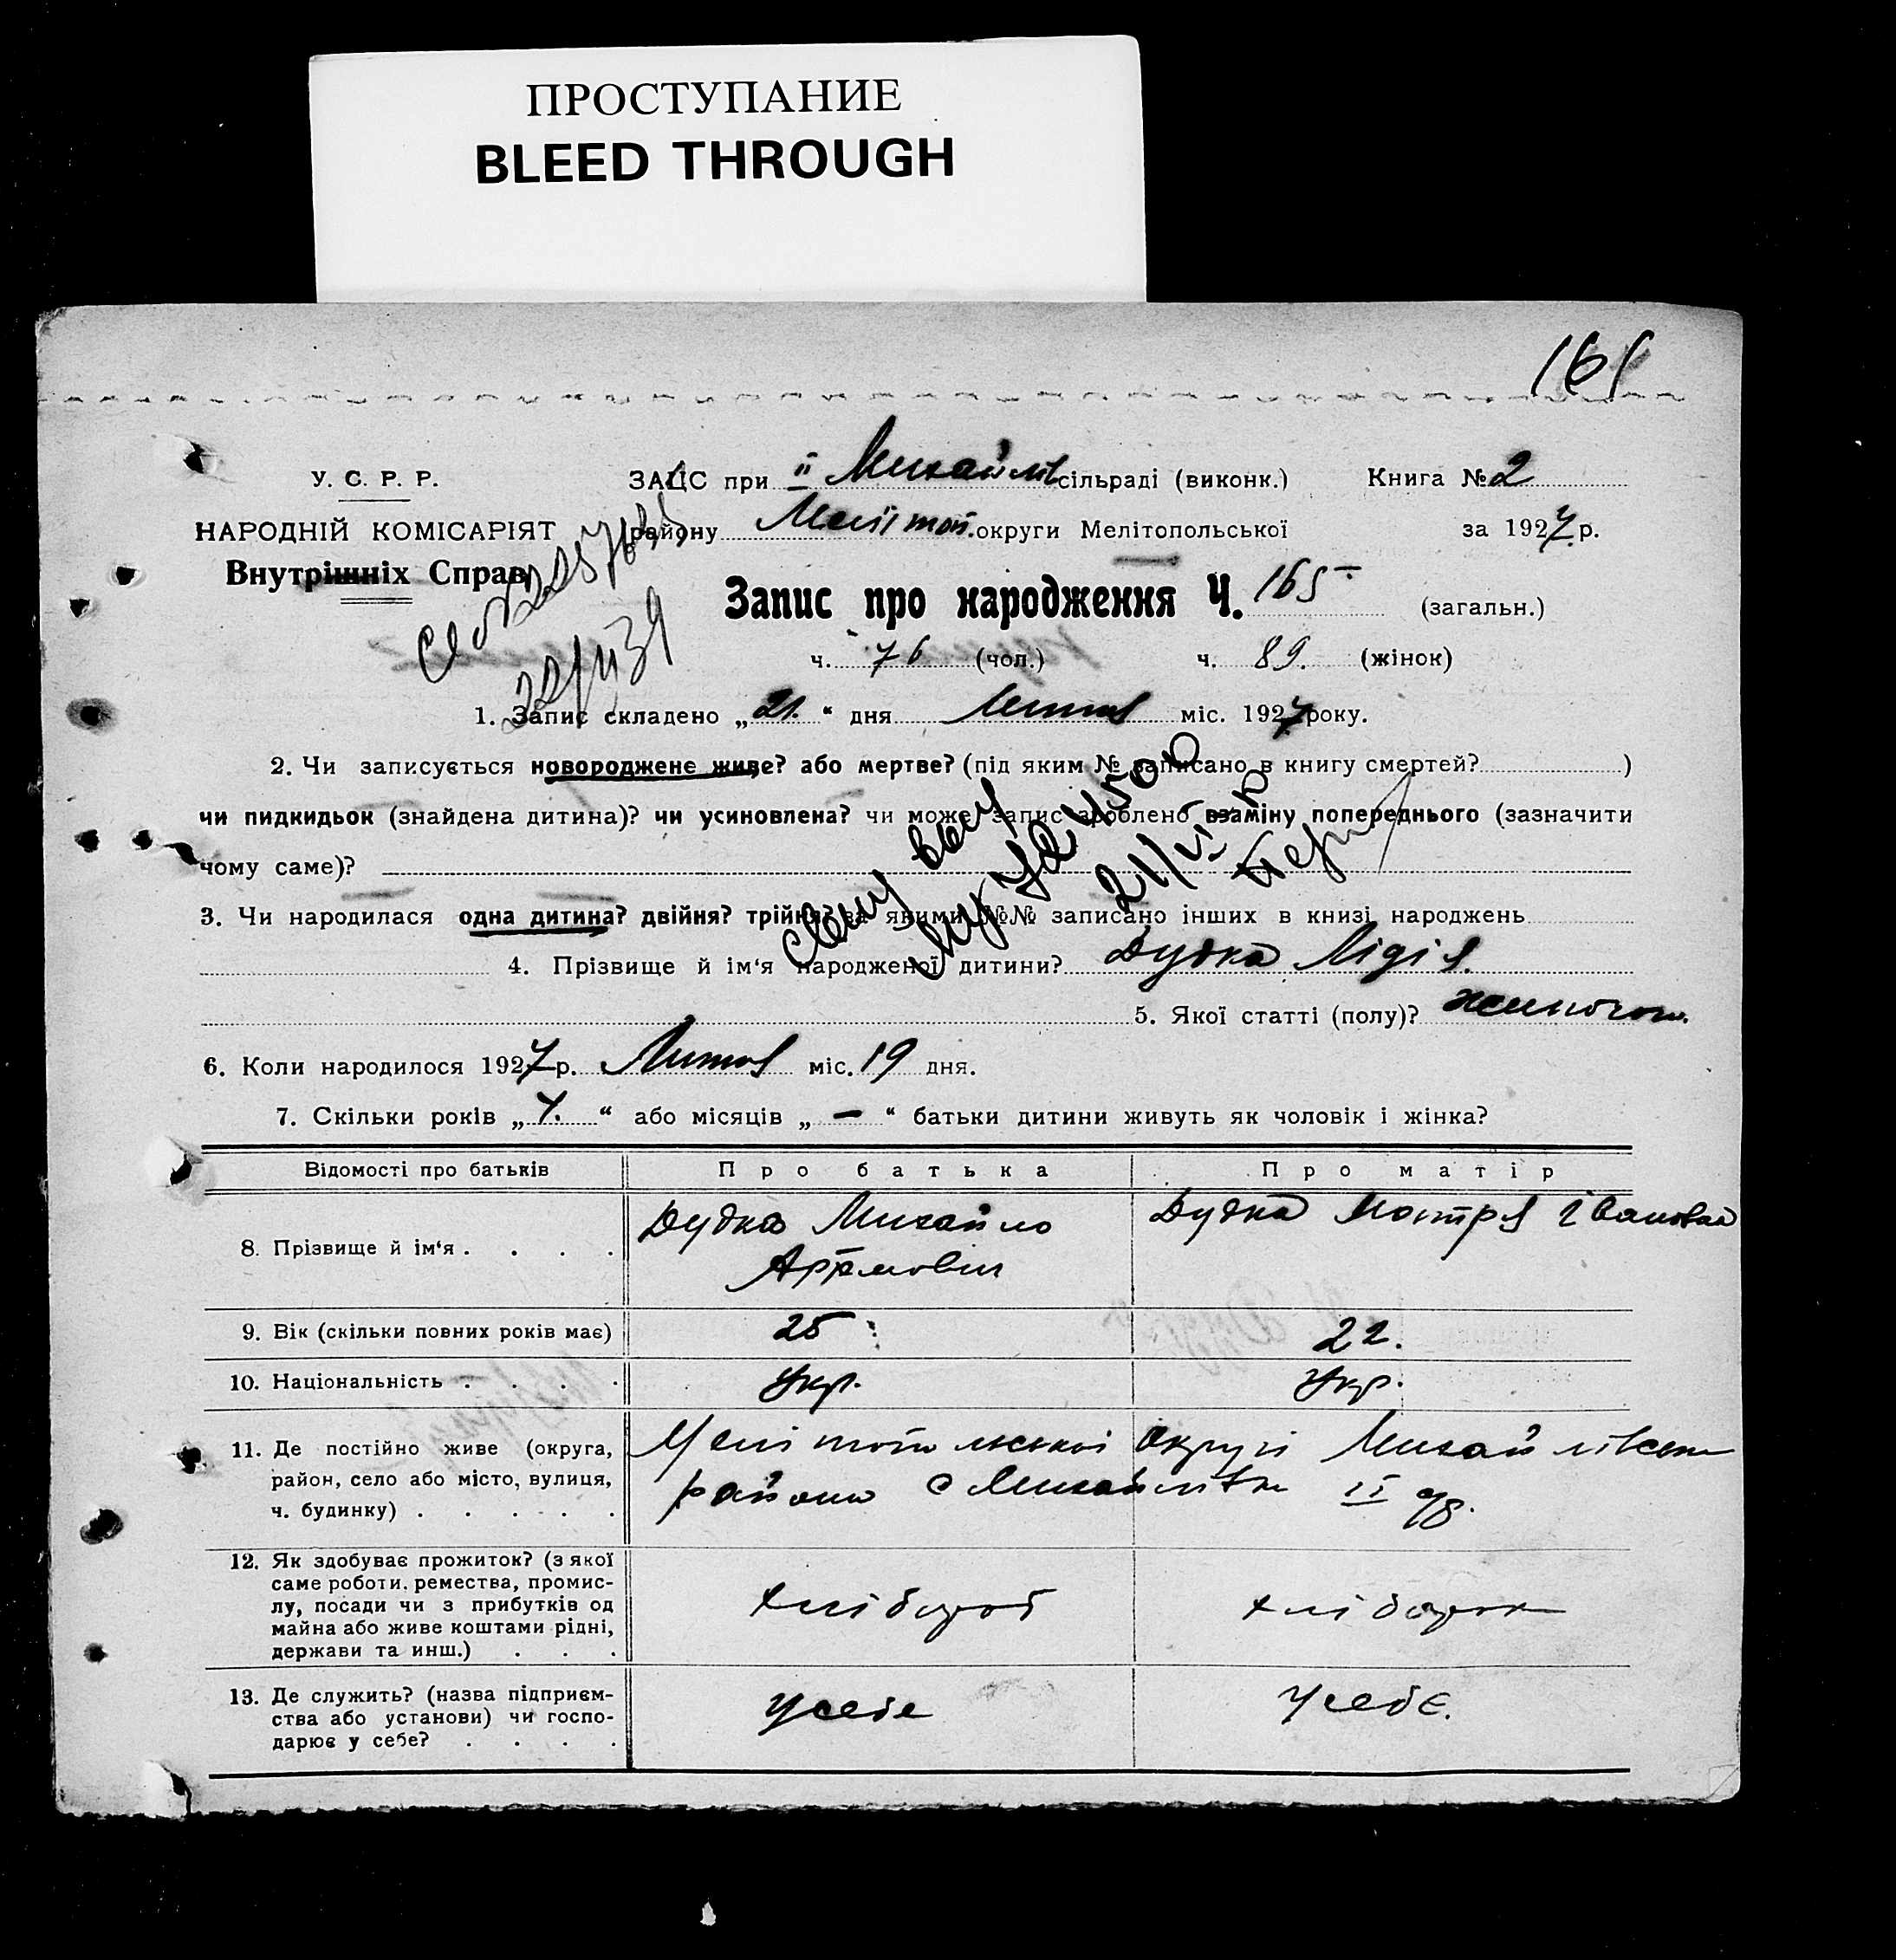 ПРОСТУПАНИЕ
BLEED THROUGH
161
У. С. Р. Р.
ЗАЦС при II Михайлів сільраді (виконк.) Книга № 2
НАРОДНІЙ КОМІСАРІЯТ
району Мелітоп. округи Мелітопольської за 1927 р.
Внутрішніх Справ
Запис про народження Ч. 165 (загальн.)
ч. 76 (чол.) ч. 89. (жінок)
1. Запис складено „21.“ дня міс. 1927 року.
2. Чи записується новороджене живе? або мертве? (під яким № записано в книгу смертей? )
чи пидкидьок (знайдена дитина)? чи усиновлена? чи може запис зроблено взаміну попереднього (зазначити
чому саме)?
3. Чи народилася одна дитина? двійня? трійня? за якими №№ записано інших в книзі народжень
4. Прізвище й ім‘я народженої дитини? Дудка Лідія.
5. Якої статті (полу)? жиночого.
6. Коли народилося 1927 р. міс. 19 дня.
7. Скільки років „7.“ або місяців „—“ батьки дитини живуть як чоловік і жінка?
Відомості про батьків Про батька Про матір
8. Прізвище й ім‘я . . . . Дудка Михайло Дудка Івановна
Артемович
9. Вік (скільки повних років має) 25 22.
10. Національність . . . . Укр. Укр.
11. Де постійно живе (округа, Мелітопольської округи Михайлівськ
район, село або місто, вулиця, району с Михайлівка II
ч. будинку) . . . . .
12. Як здобуває прожиток? (з якої
саме роботи, ремества, промис-
лу, посади чи з прибутків од хлібороб хлібороб
майна або живе коштами рідні,
держави та инш.) . . .
13. Де служить? (назва підприєм- усебе усебе.
ства або установи) чи госпо-
дарює у себе? . . . .